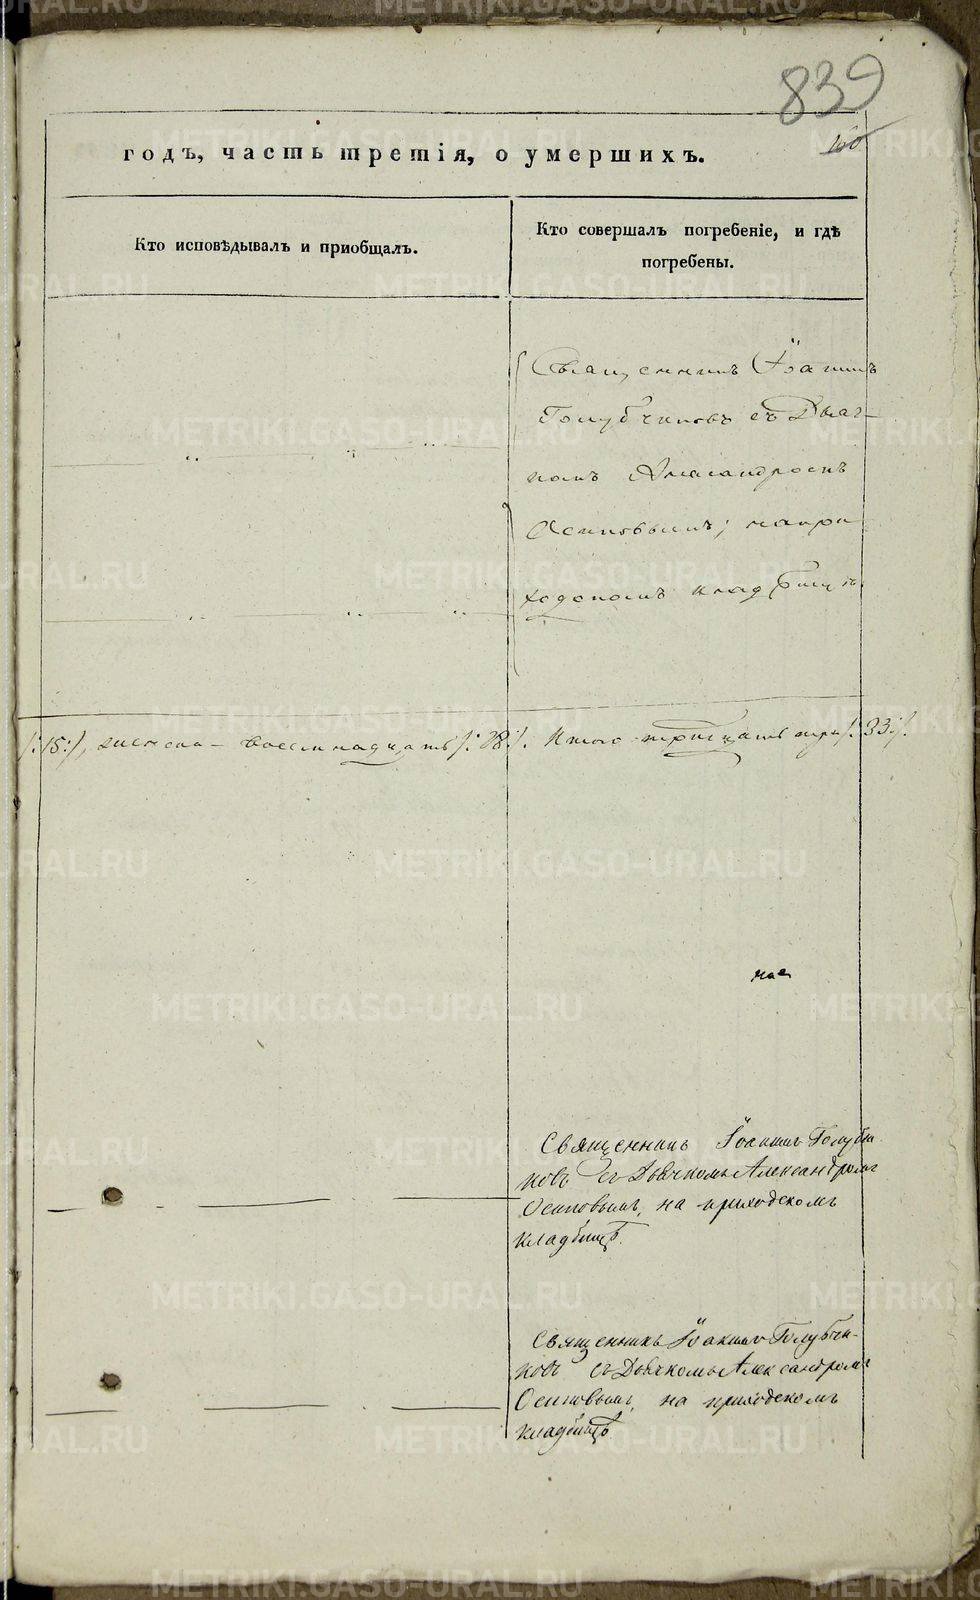 839
160
годъ, часть третія, о умершихъ.
Кто исповѣдывалъ и приобщалъ.
Кто совершалъ погребеніе, и гдѣ
погребены.
Священникъ Іоаннъ
Голубчиковъ съ Дьяч-
комъ Александромъ
Осиповымъ; на при
ходскомъ кладбищѣ.
/:15:/, женска – восемнадцать /:18:/. Итого тридцать три /:33:/.
Священникъ Іоаннъ Голубчи
ковъ съ Дьячкомъ Александромъ
Осиповымъ, на приходскомъ
кладбищѣ.
Священникъ Іоаннъ Голубчи-
ковъ съ Дьячкомъ Александромъ
Осиповымъ, на приходскомъ
кладбищѣ
METRIKI.GASO-URAL.RU